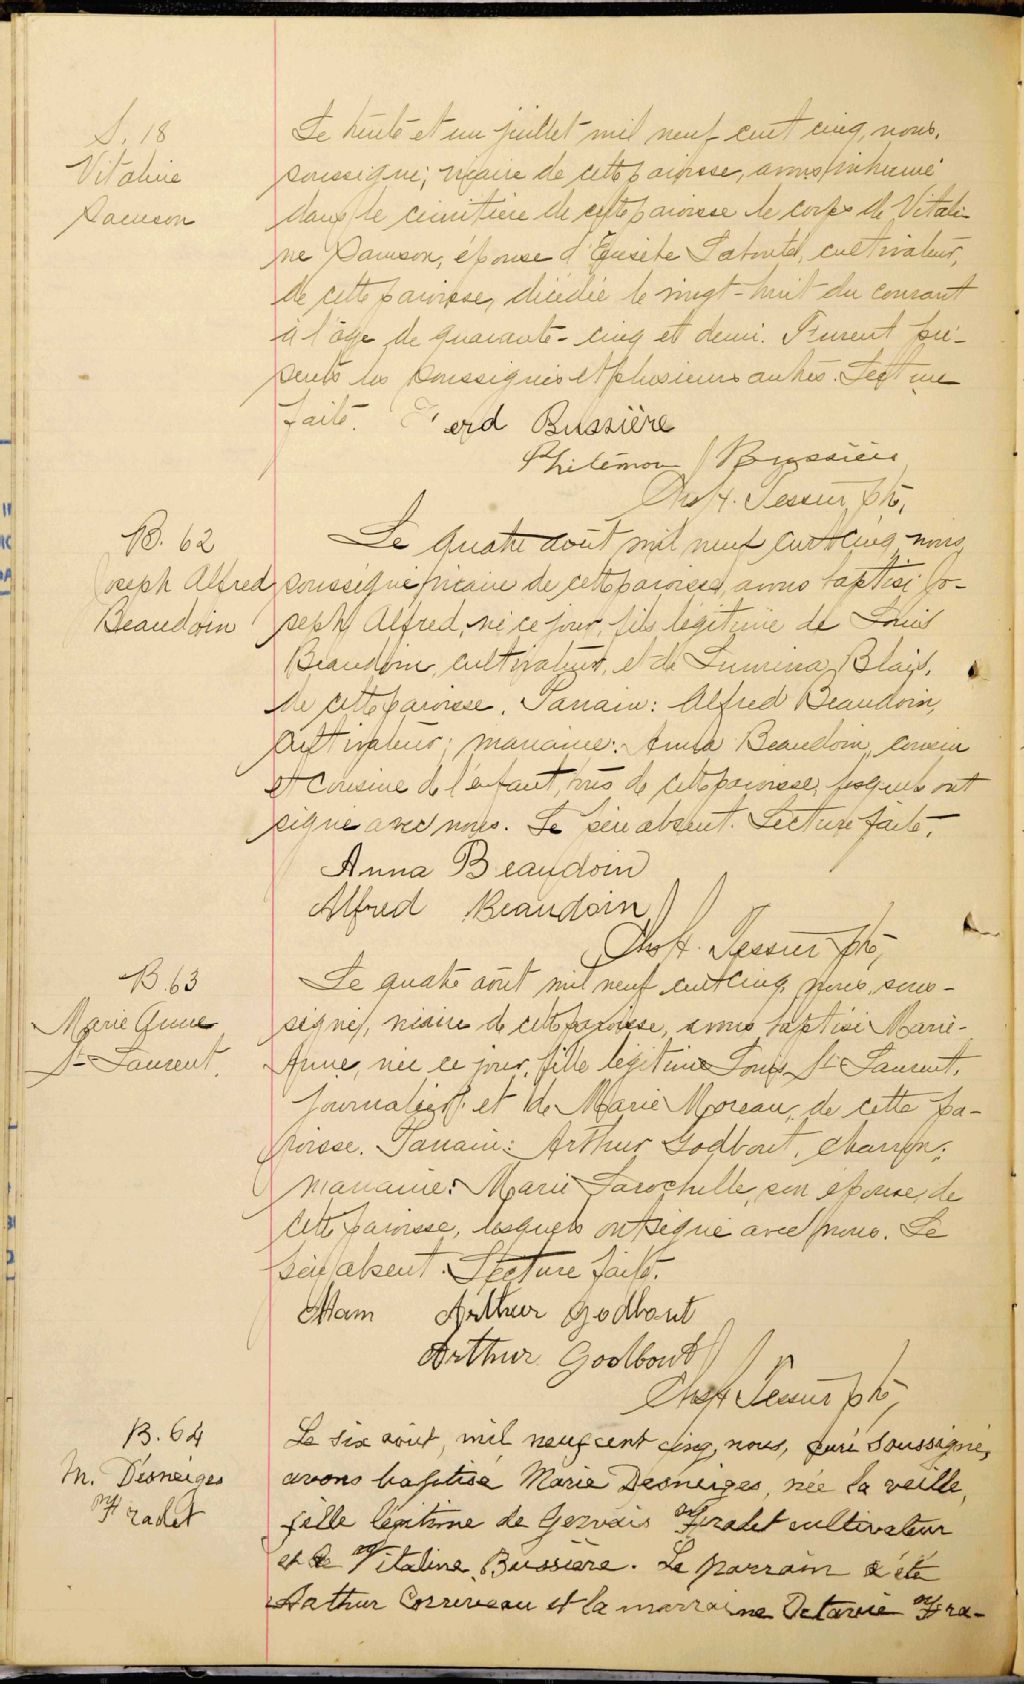 S. 18
Vitaline
Samson
Le trente et un juillet mil neuf cent cinq, nous,
soussigné, vicaire de cette paroisse, avons inhumé
dans le cimetière de cette paroisse le corps de Vitali-
ne Samson, épouse d'Eusèbe Labonté, cultivateur,
de cette paroisse, décédée le vingt-huit du courant
à l'âge de quarante-cinq et demi. Furent pré-
sents les soussignés et plusieurs autres. Lecture
faite. Ferd Bussière
Philémon Bussière
Chs H. Tessier ptre,
B. 62
Joseph Alfred
Beaudoin
Le quatre août mil neuf cent cinq, nous,
soussigné, vicaire de cette paroisse, avons baptisé Jo-
seph Alfred, né ce jour, fils légitime de Louis
Beaudoin, cultivateur, et de Lumina Blais,
de cette paroisse. Parrain: Alfred Beaudoin,
cultivateur; marraine: Anna Beaudoin, cousin
et cousine de l'enfant, tous de cette paroisse, lesquels ont
signé avec nous. Le père absent. Lecture faite.
Anna Beaudoin
Alfred Beaudoin
Chs H. Tessier ptre,
B. 63
Marie Anne
St Laurent.
Le quatre août mil neuf cent cinq, nous, sous-
signé, vicaire de cette paroisse, avons baptisé Marie-
Anne, née ce jour, fille légitime Louis St Laurent,
journalier, et de Marie Moreau, de cette pa-
roisse. Parrain: Arthur Godbout, charron;
marraine: Marie Larochelle, son épouse, de
cette paroisse, lesquels ont signé avec nous. Le
père absent. Lecture faite.
Mam Arthur Godbout
Arthur Godbout
Chs H Tessier ptre,
B. 64
M. Desneiges
Fradet
Le six août, mil neuf cent cinq, nous, curé soussigné,
avons baptisé Marie Desneiges, née la veille,
fille légitime de Gervais Fradet cultivateur
et de Vitaline Bussière. Le parrain a été
Arthur Corriveau et la marraine Octavie Fra-